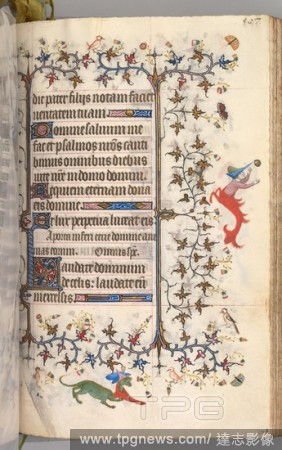 127
dic pater filijs notam faciet
ueritatem tuam
Domine saluum me
fac et psalmos nr̄os canta
bimus omnibus diebus
uite nrē in domo domini
Requiem eternam dona
eis domine
Et lux perpetua luceat eis
A porta inferi erue domine ani
mas eorum
Laudate dominum
de celis: laudate eū
in excelsis
TPG
www.tpgnews.com / 達志影像